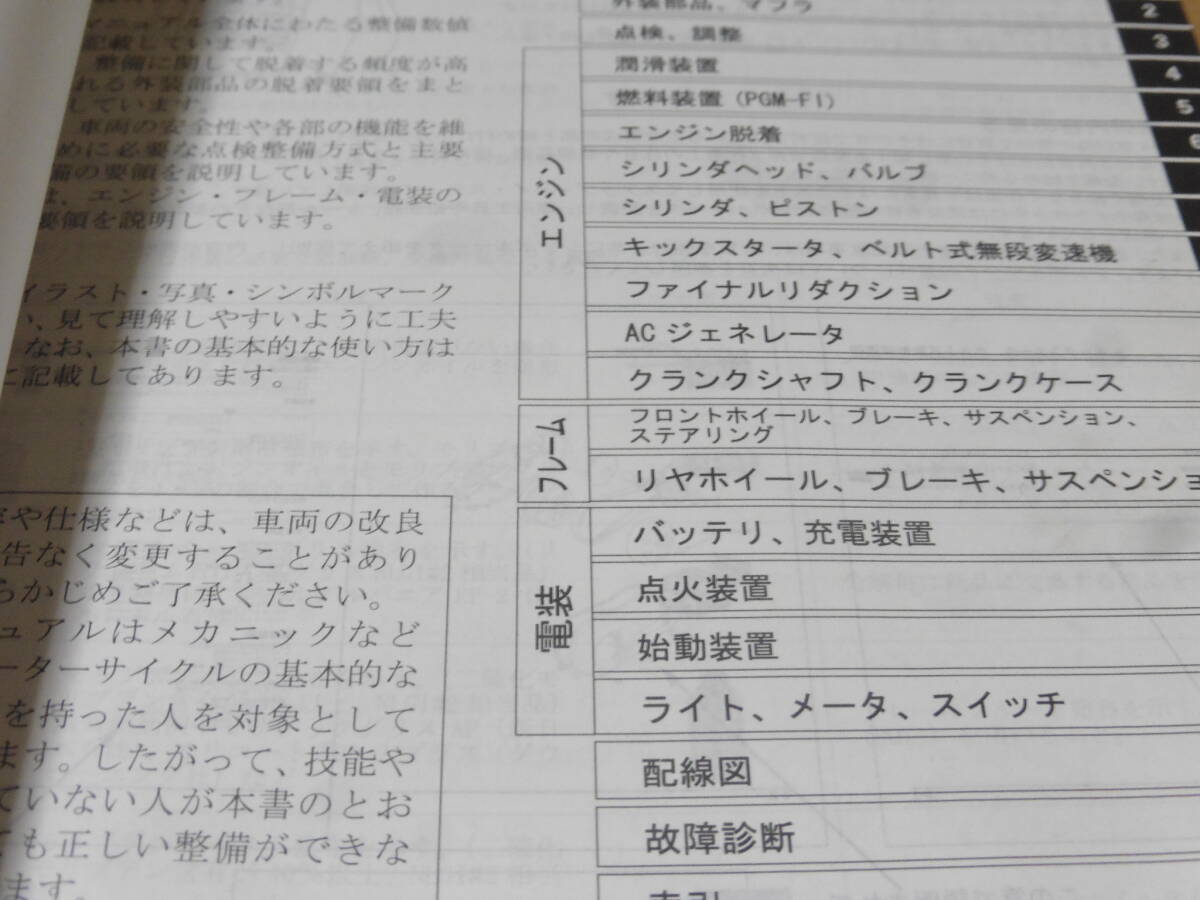 マニュアル全体にわたる整備数値
記載しています。
整備に関して脱着する頻度が高
れる外装部品の脱着要領をまと
しています。
車両の安全性や各部の機能を維
めに必要な点検整備方式と主要
備の要領を説明しています。
は、エンジン・フレーム・電装の
要領を説明しています。
イラスト・写真・シンボルマーク
い、見て理解しやすいように工夫
なお、本書の基本的な使い方は
に記載してあります。
や仕様などは、車両の改良
告なく変更することがあり
らかじめご了承ください。
ュアルはメカニックなど
ーターサイクルの基本的な
を持った人を対象として
ます。したがって、技能や
ていない人が本書のとお
ても正しい整備ができな
ます。
外装部品、マフラ
2
点検、調整
3
エンジン
潤滑装置
4
燃料装置 (PGM-FI)
5
エンジン脱着
6
シリンダヘッド、バルブ
シリンダ、ピストン
キックスタータ、ベルト式無段変速機
ファイナルリダクション
AC ジェネレータ
クランクシャフト、クランクケース
フレーム
フロントホイール、ブレーキ、サスペンション、
ステアリング
リヤホイール、ブレーキ、サスペンショ
電装
バッテリ、充電装置
点火装置
始動装置
ライト、メータ、スイッチ
配線図
故障診断
索引